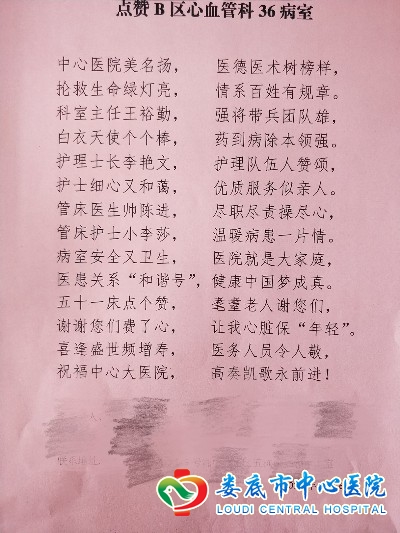 点赞 B 区心血管科 36 病室
中心医院美名扬， 医德医术树榜样，
抢救生命绿灯亮， 情系百姓有规章。
科室主任王裕勤， 强将带兵团队雄，
白衣天使个个棒， 药到病除本领强。
护理士长李艳文， 护理队伍人赞颂，
护士细心又和蔼， 优质服务似亲人。
管床医生帅陈进， 尽职尽责操尽心，
管床护士小李莎， 温暖病患一片情。
病室安全又卫生， 医院就是大家庭，
医患关系“和谐号”， 健康中国梦成真。
五十一床点个赞， 耄耋老人谢您们，
谢谢您们费了心， 让我心脏保“年轻”。
喜逢盛世频增寿， 医务人员令人敬，
祝福中心大医院， 高奏凯歌永前进！
娄底市中心医院
LOUDI CENTRAL HOSPITAL